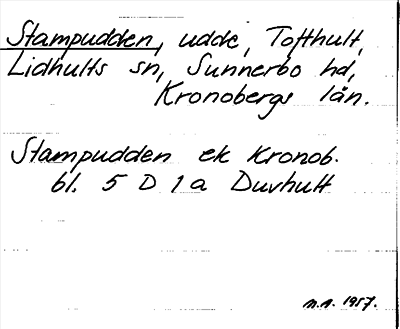 Stampudden, udde, Tofthult,
Lidhults sn, Sunnerbo hd,
Kronobergs län.
Stampudden ek Kronob.
bl. 5 D 1 a Duvhult
n.n. 1957.